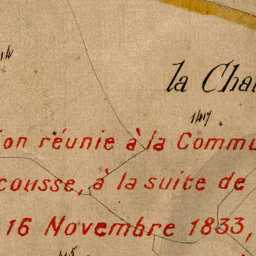 la Cha
147
ion réunie à la Commu
cousse, à la suite de
16 Novembre 1833,